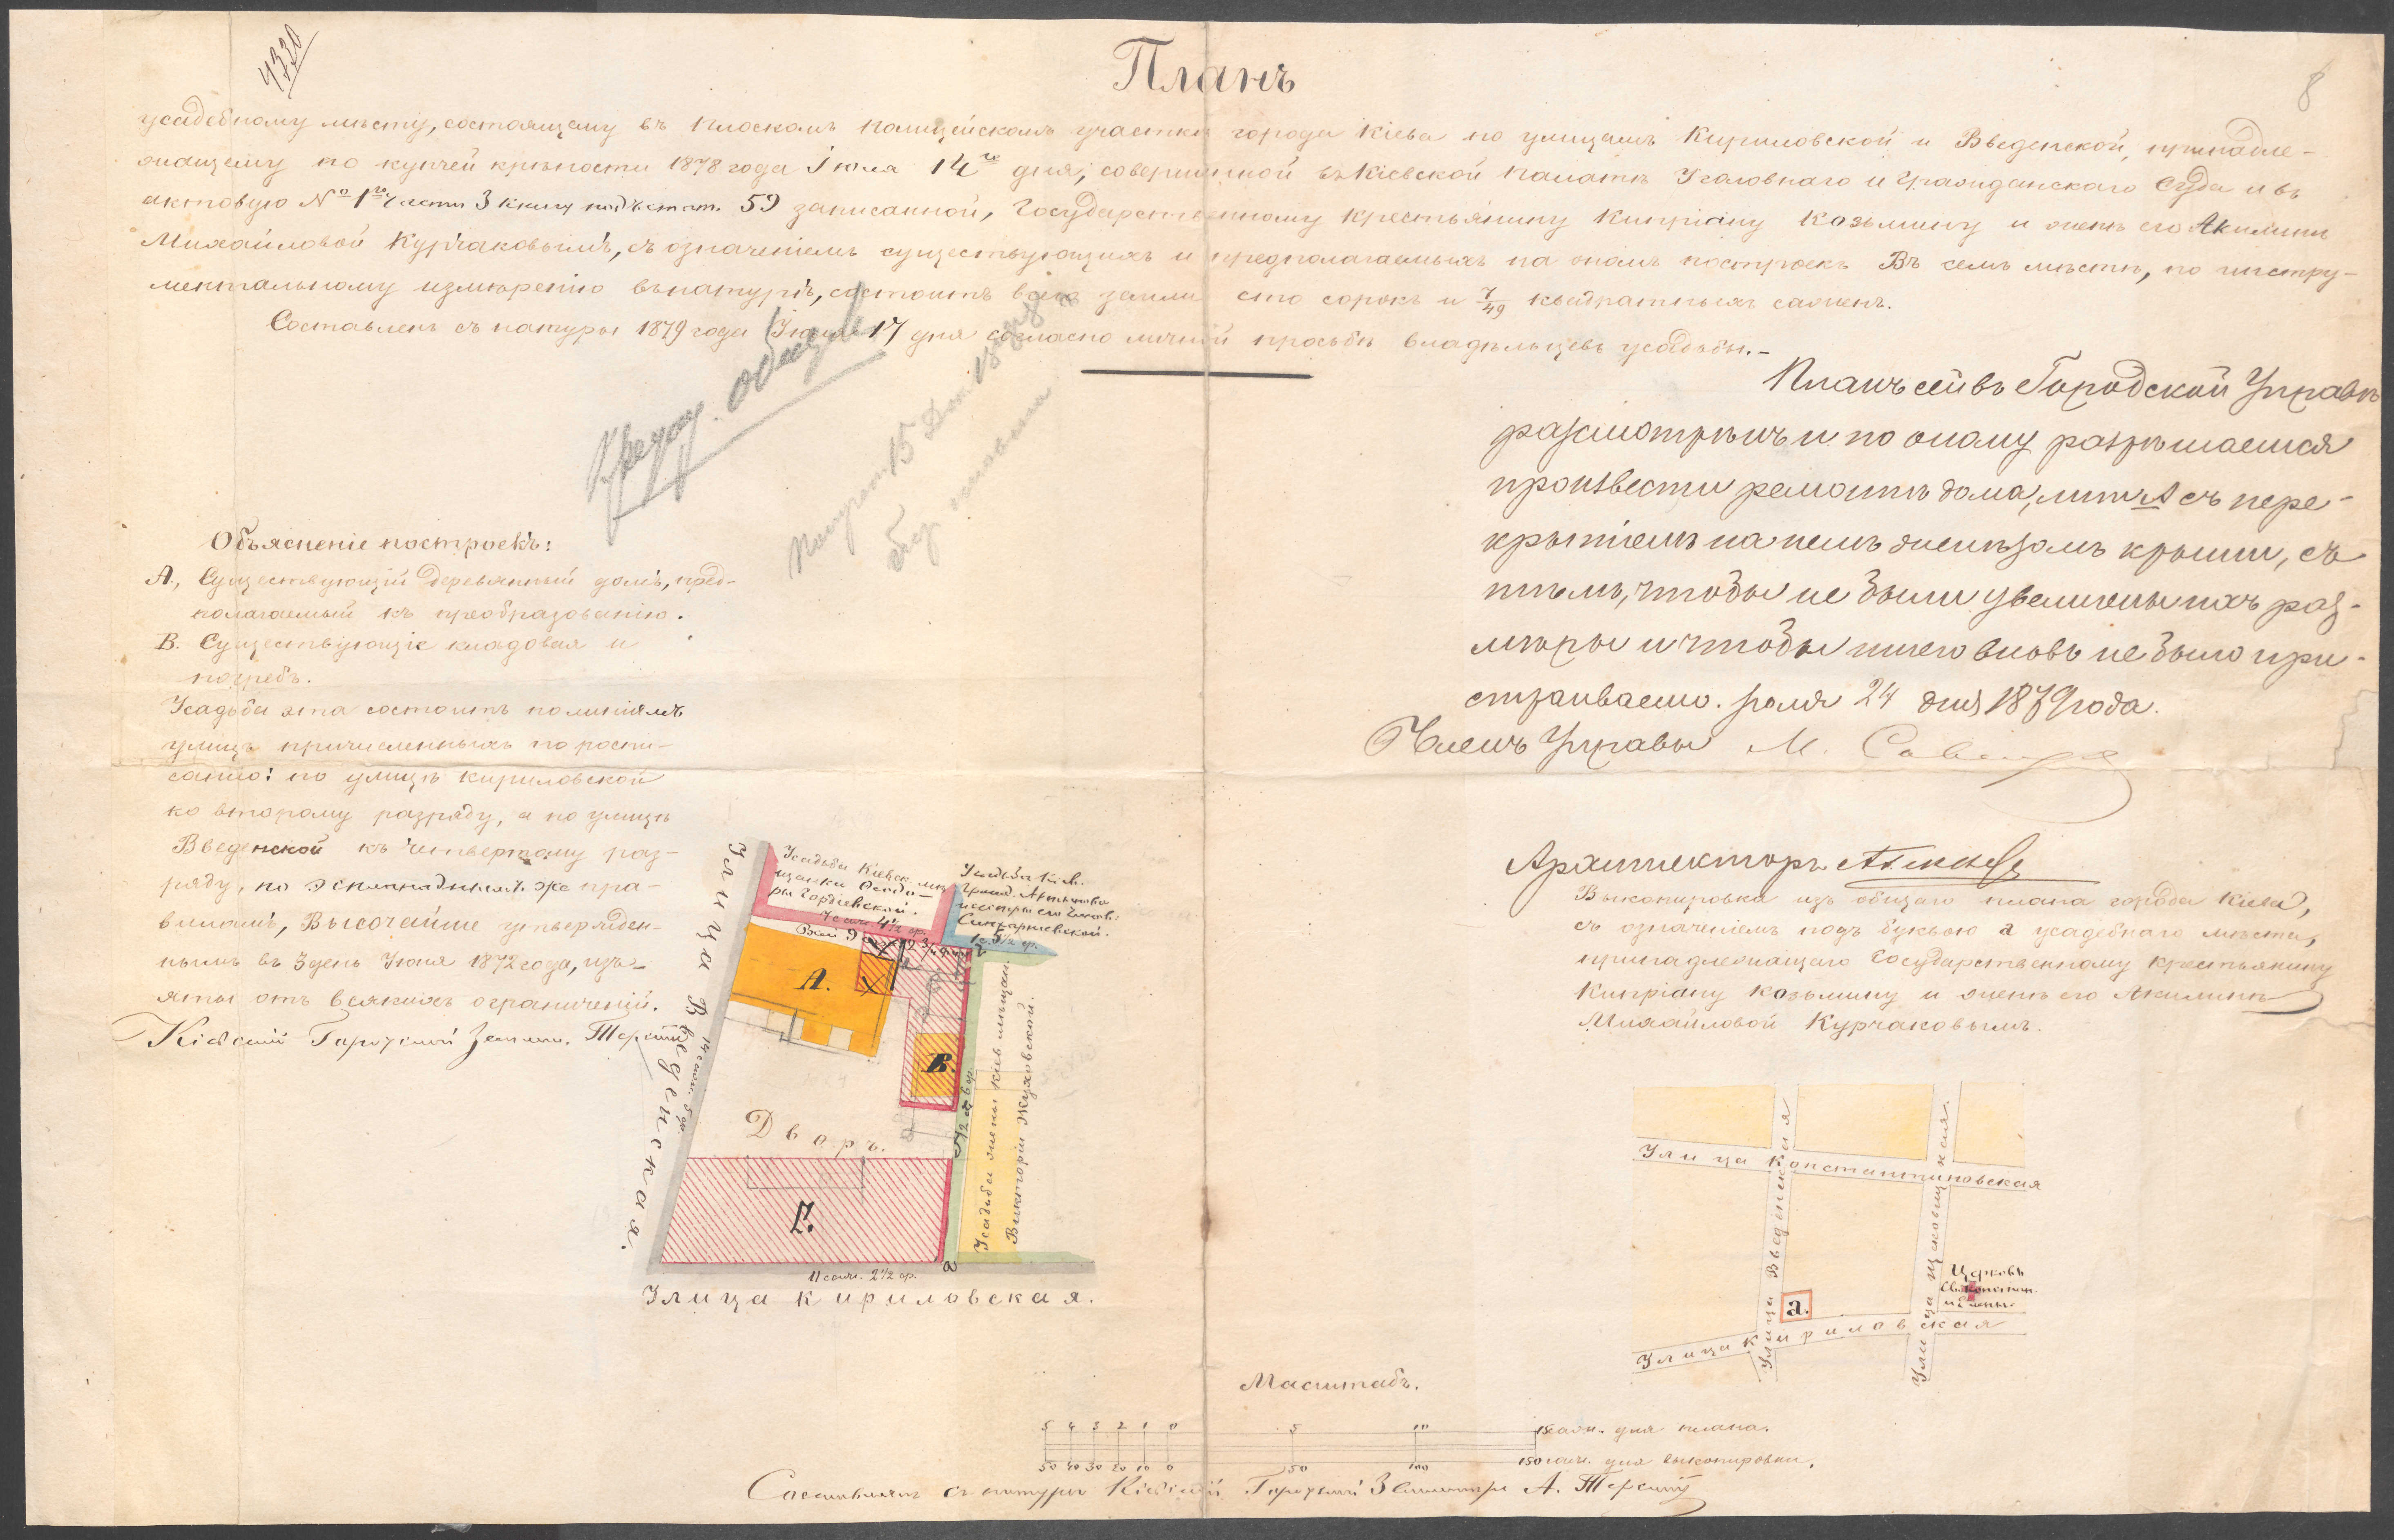 4320
8
Планъ
усадебному мѣсту, состоящему въ Плоскомъ полицейскомъ участкѣ города Кіева по улицамъ Кириловской и Введенской, принадле-
жащему по купчей крѣпости 1878 года Іюля 14го дня, совершенной въ Кіевской Палатѣ Уголовнаго и Гражданскаго Суда и въ
актовую № 1го части 3 книгу подъ стат. 59 записанной, Государственному крестьянину Кипріану Козьмину и женѣ его Акилинѣ
Михайловой Курчаковымъ, съ означеніемъ существующихъ и предполагаемыхъ на ономъ построекъ Въ семъ мѣстѣ, по инстру-
ментальному измѣренію въ натурѣ, состоитъ всей земли сто сорокъ и 7/49 квадратныхъ саженъ.
Составленъ съ натуры 1879 года 17 дня согласно личной просьбы владѣльцевъ усадьбы.-
Планъ сей въ Городской Управѣ
разсмотрѣнъ и по оному разрѣшается
произвести ремонтъ дома, лит А съ пере-
крытіемъ на немъ желѣзомъ крыши, съ
тѣмъ, чтобы не были увеличены ихъ раз-
мѣры и чтобы ничего вновь не было при-
страиваемо. Іюля 24 дня 1879 года.
Членъ Управы М.
Архитекторъ
Объясненіе построекъ:
А, Существующій деревянный домъ, пред-
полагаемый къ преобразованію.
В. Существующіе кладовая и
погребъ.
Усадьба эта состоитъ по линіямъ
улицъ причисленныхъ по роспи-
санію: по улицѣ Кириловской
ко второму разряду, а по улицѣ
Введенской къ четвертому раз-
ряду, по эспланаднымъ же пра-
виламъ, Высочайше утвержден-
нымъ въ 3 день Іюня 1872 года, изъ-
яты отъ всякихъ ограниченій.
Кіевскій Городской Землем.
Выкопировка изъ общаго плана города Кіева,
съ означеніемъ подъ буквою а усадебнаго мѣста,
принадлежащаго Государственному крестьянину
Кипріану Козьмину и женѣ его Акилинѣ
Михайловой Курчаковымъ.
Усадьба Кіевск. мѣ-
щанки Ѳеодо-
ры Гордіевской.
Усадьба Кіев.
Улица Введенская.
14 саж. 5
А.
В.
Дворъ.
Г.
11 саж. 2½ ар.
Улица Кириловская.
Усадьба жены кіев. мѣщан.
Викторіи Жуковской.
Улица Константиновская
Улица Введенская
Улица Щековицкая.
Церковь
Св. Констан.
и Елены.
а.
Улица Кириловская
Масштабъ.
5 4 3 2 1 0 5 10 15 саж. для плана.
50 40 30 20 10 0 50 100 150 саж. для выкопировки.
Составилъ съ натуры Кіевскій Городской Землемѣръ А.